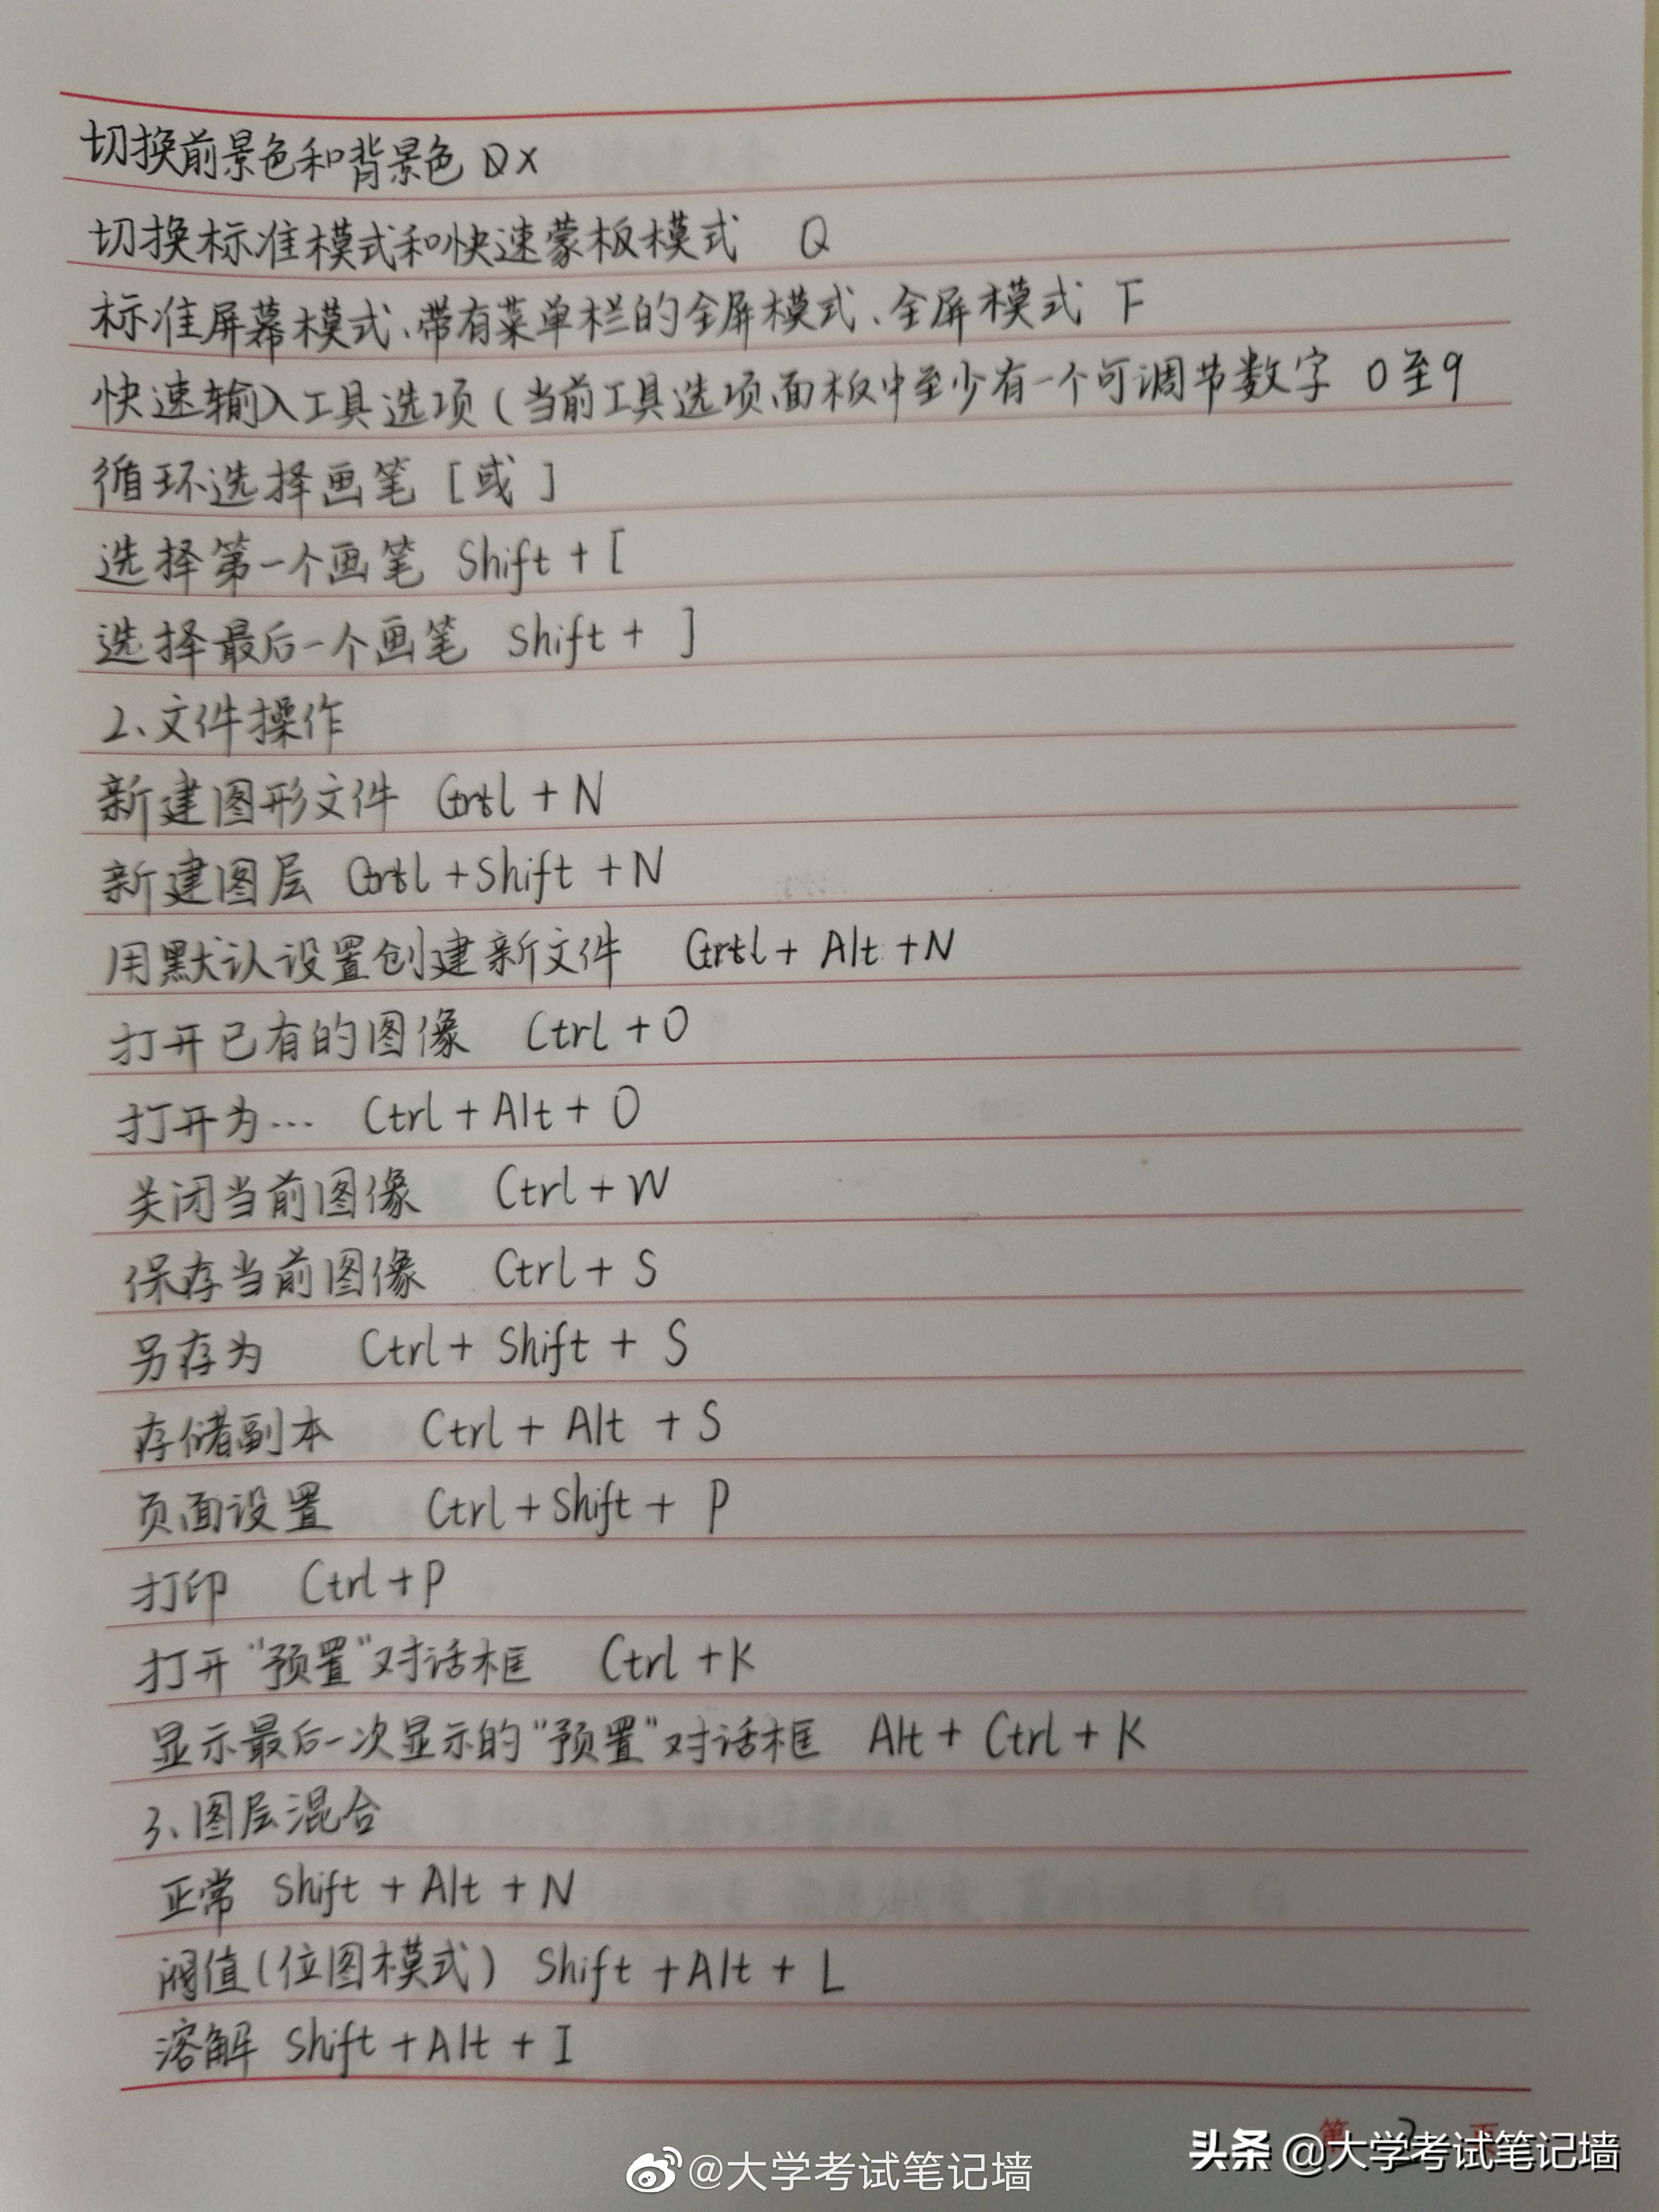 切换前景色和背景色 DX
切换标准模式和快速蒙板模式 Q
标准屏幕模式、带有菜单栏的全屏模式、全屏模式 F
快速输入工具选项(当前工具选项面板中至少有一个可调节数字 0至9
循环选择画笔 [或]
选择第一个画笔 Shift + [
选择最后一个画笔 Shift + ]
2、文件操作
新建图形文件 Crtl + N
新建图层 Crtl + Shift + N
用默认设置创建新文件 Crtl + Alt + N
打开已有的图像 Ctrl + O
打开为… Ctrl + Alt + O
关闭当前图像 Ctrl + W
保存当前图像 Ctrl + S
另存为 Ctrl + Shift + S
存储副本 Ctrl + Alt + S
页面设置 Ctrl + Shift + P
打印 Ctrl + P
打开“预置”对话框 Ctrl + K
显示最后一次显示的“预置”对话框 Alt + Ctrl + K
3、图层混合
正常 Shift + Alt + N
阈值(位图模式) Shift + Alt + L
溶解 Shift + Alt + I
第 2 页
头条 @大学考试笔记墙
@大学考试笔记墙